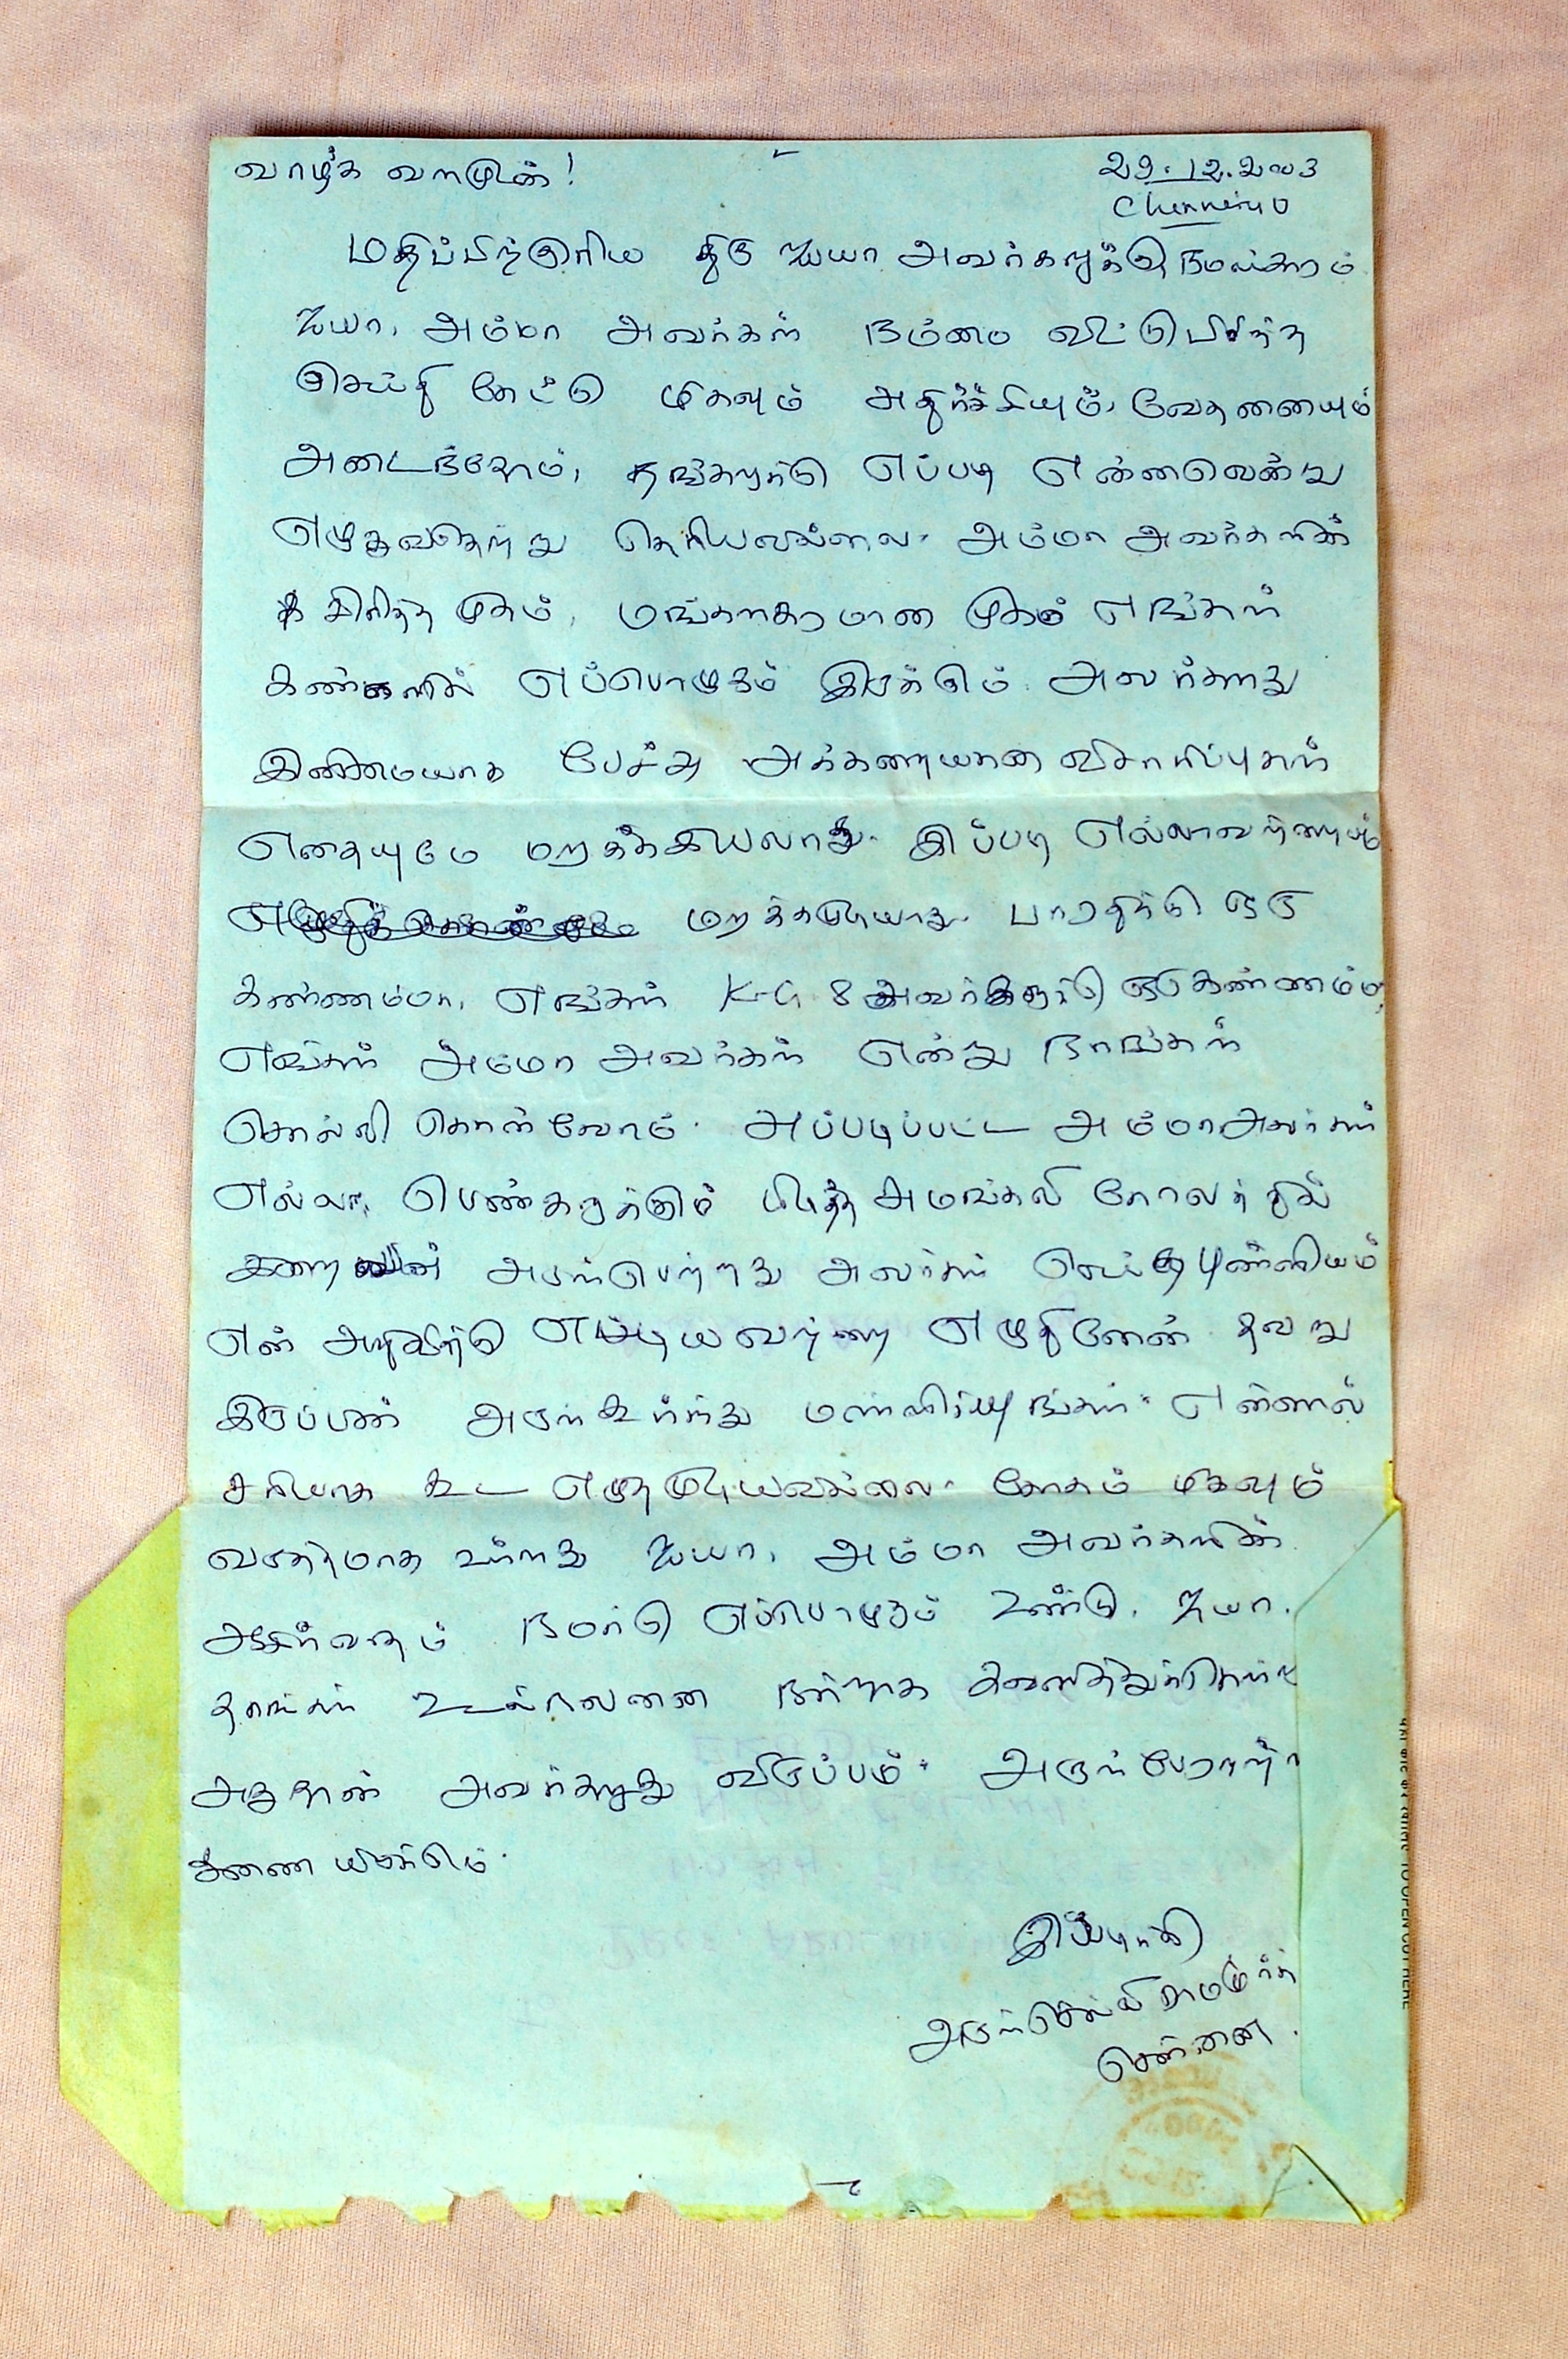 வாழ்க வளமுடன்!
29.12.2003
Chennai
மதிப்பிற்குரிய திரு ஐயா அவர்களுக்கு நமஸ்காரம்
ஐயா, அம்மா அவர்கள் நம்மை விட்டு பிரிந்த
செய்தி கேட்டு மிகவும் அதிர்ச்சியும், வேதனையும்
அடைந்தோம், தங்களுக்கு எப்படி என்னவென்று
எழுதுவதென்று தெரியவில்லை. அம்மா அவர்களின்
சிரித்த முகம், மங்களகரமான முகம் எங்கள்
கண்களில் எப்பொழுதும் இருக்கும். அவர்களது
இனிமையாக பேச்சு அக்கறையான விசாரிப்புகள்
எதையுமே மறக்கஇயலாது. இப்படி எல்லாவற்றையும்
மறக்கமுடியாது. பாரதிக்கு ஒரு
கண்ணம்மா, எங்கள் K-G 8 அவர்களுக்கு ஒரு கண்ணம்மா,
எங்கள் அம்மா அவர்கள் என்று நாங்கள்
சொல்லி கொள்வோம். அப்படிப்பட்ட அம்மா அவர்கள்
எல்லா பெண்களுக்கும் பிடித்த சுமங்கலி கோலத்தில்
இறைவன் அருள்பெற்றது அவர்கள் செய்த புண்ணியம்
என் அறிவிற்கு எட்டியவற்றை எழுதினேன் தவறு
இருப்பின் அருள்கூர்ந்து மன்னிக்கவுங்கள். என்னால்
சரியாக கூட எழுதமுடியவில்லை. சோகம் மிகவும்
வருத்தமாக உள்ளது ஐயா, அம்மா அவர்களின்
ஆசீர்வாதம் நமக்கு எப்பொழுதும் உண்டு. ஐயா.
தாங்கள் உடல்நலனை நன்றாக கவனித்துக்கொள்ள
அதுதான் அவர்களது விருப்பம். அருள் பேராற்ற
துணை புரியும்.
இப்படிக்கு
அருள்செல்வி ராமமூர்த்தி
சென்னை.
TO OPEN CUT HERE